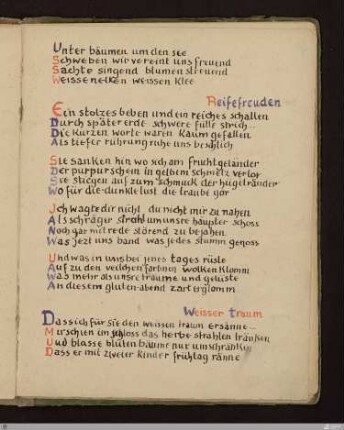 Unter bäumen um den see
Schweben wir vereint uns freuend
Sachte singend blumen streuend
Weisse nelken weissen klee
Reifefreuden
Ein stolzes beben und ein reiches schallen
Durch später erde schwere fülle strich..
Die kurzen worte waren kaum gefallen
Als tiefer rührung ruhe uns beschlich
Sie sanken hin wo sich am fruchtgeländer
Der purpurschein im gelben schmelz verlor
Sie stiegen auf zum schmuck der hügelränder
Wo für die dunkle lust die traube gor
Ich wagte dir nicht du nicht mir zu nahen
Als schräger strahl um unsre häupter schoss
Noch gar mit rede störend zu bejahen
Was jezt uns band was jedes stumm genoss
Und was in uns bei jenes tages rüste
Auf zu den veilchenfarbnen wolken klomm
Was mehr als unsre träume und gelüste
An diesem gluten-abend zart erglomm
Weisser traum
Dass ich für sie den weissen traum ersänne..
Mir schien im schloss das herbe strahlen tränken
Und blasse blüten bäume nur umschränken
Dass er mit zweier kinder frühtag ränne